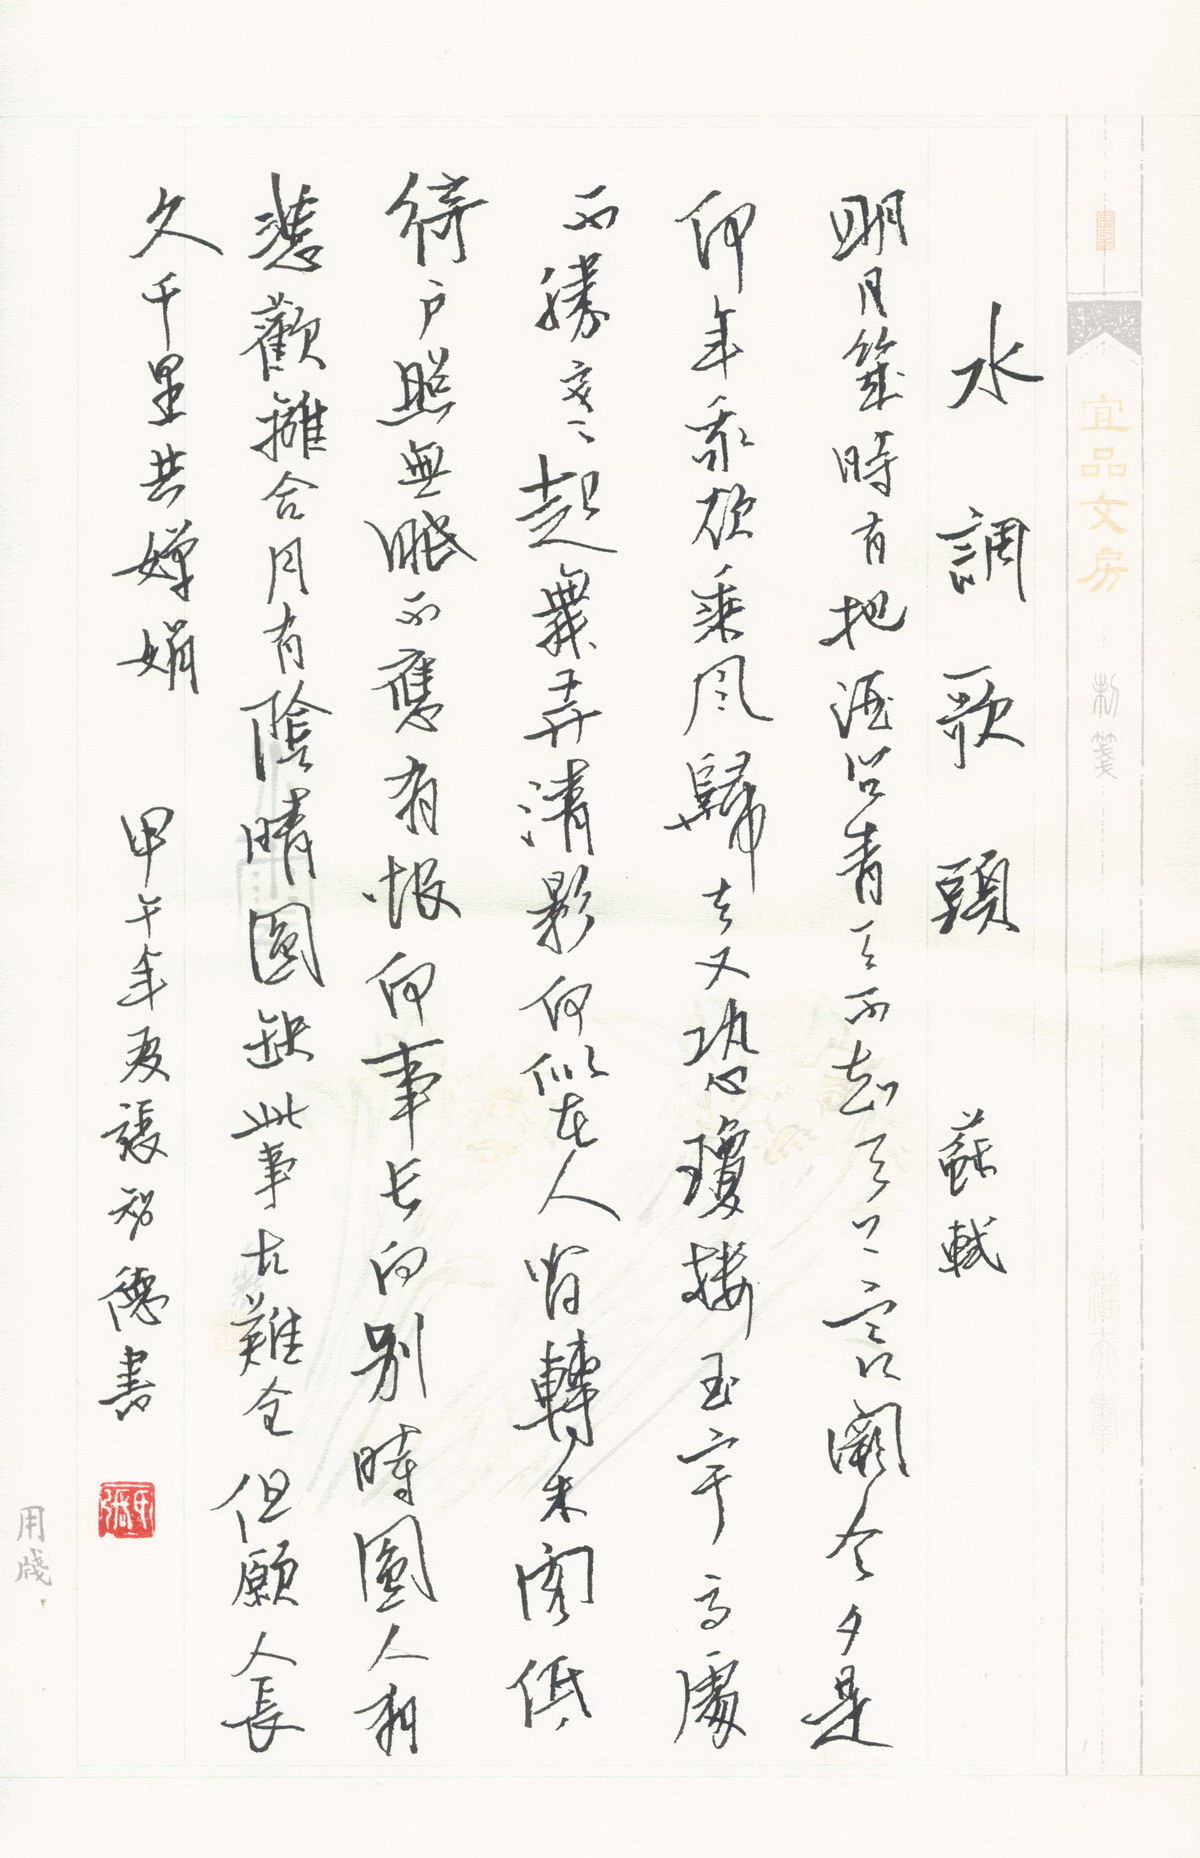 宜品文房 制箋
水調歌頭 蘇軾
明月幾時有把酒問青天不知天上宮闕今夕是
何年我欲乘風歸去又恐瓊樓玉宇高處
不勝寒起舞弄清影何似在人間轉朱閣低
綺户照無眠不應有恨何事長向別時圓人有
悲歡離合月有陰晴圓缺此事古難全但願人長
久千里共嬋娟 甲午年夏張智德書
用牋